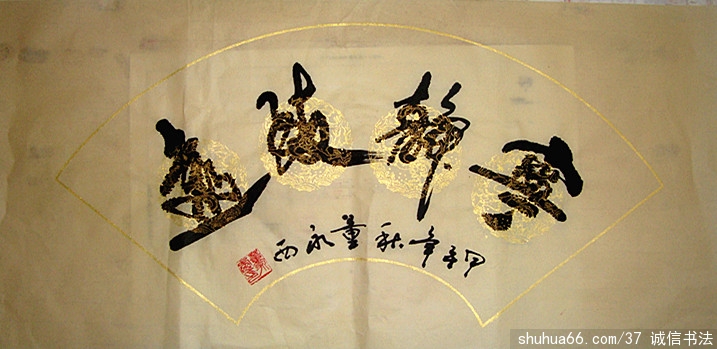 寧靜致遠
年秋董永西
shuhua66.com/37 诚信书法